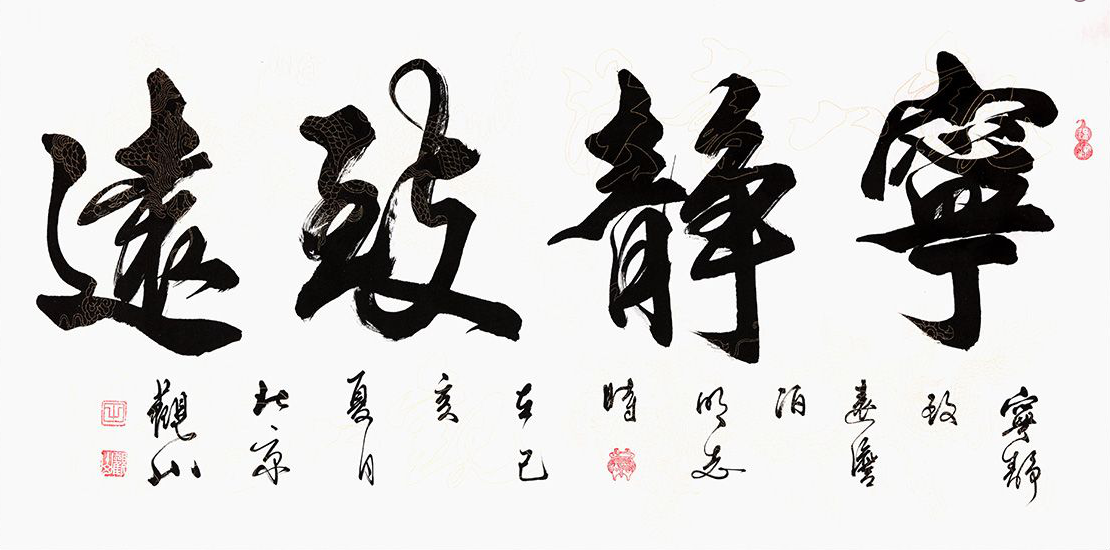 寧靜致遠
寧靜
致
遠澹
泊
明志
時
在己
亥
夏月
北京
觀山